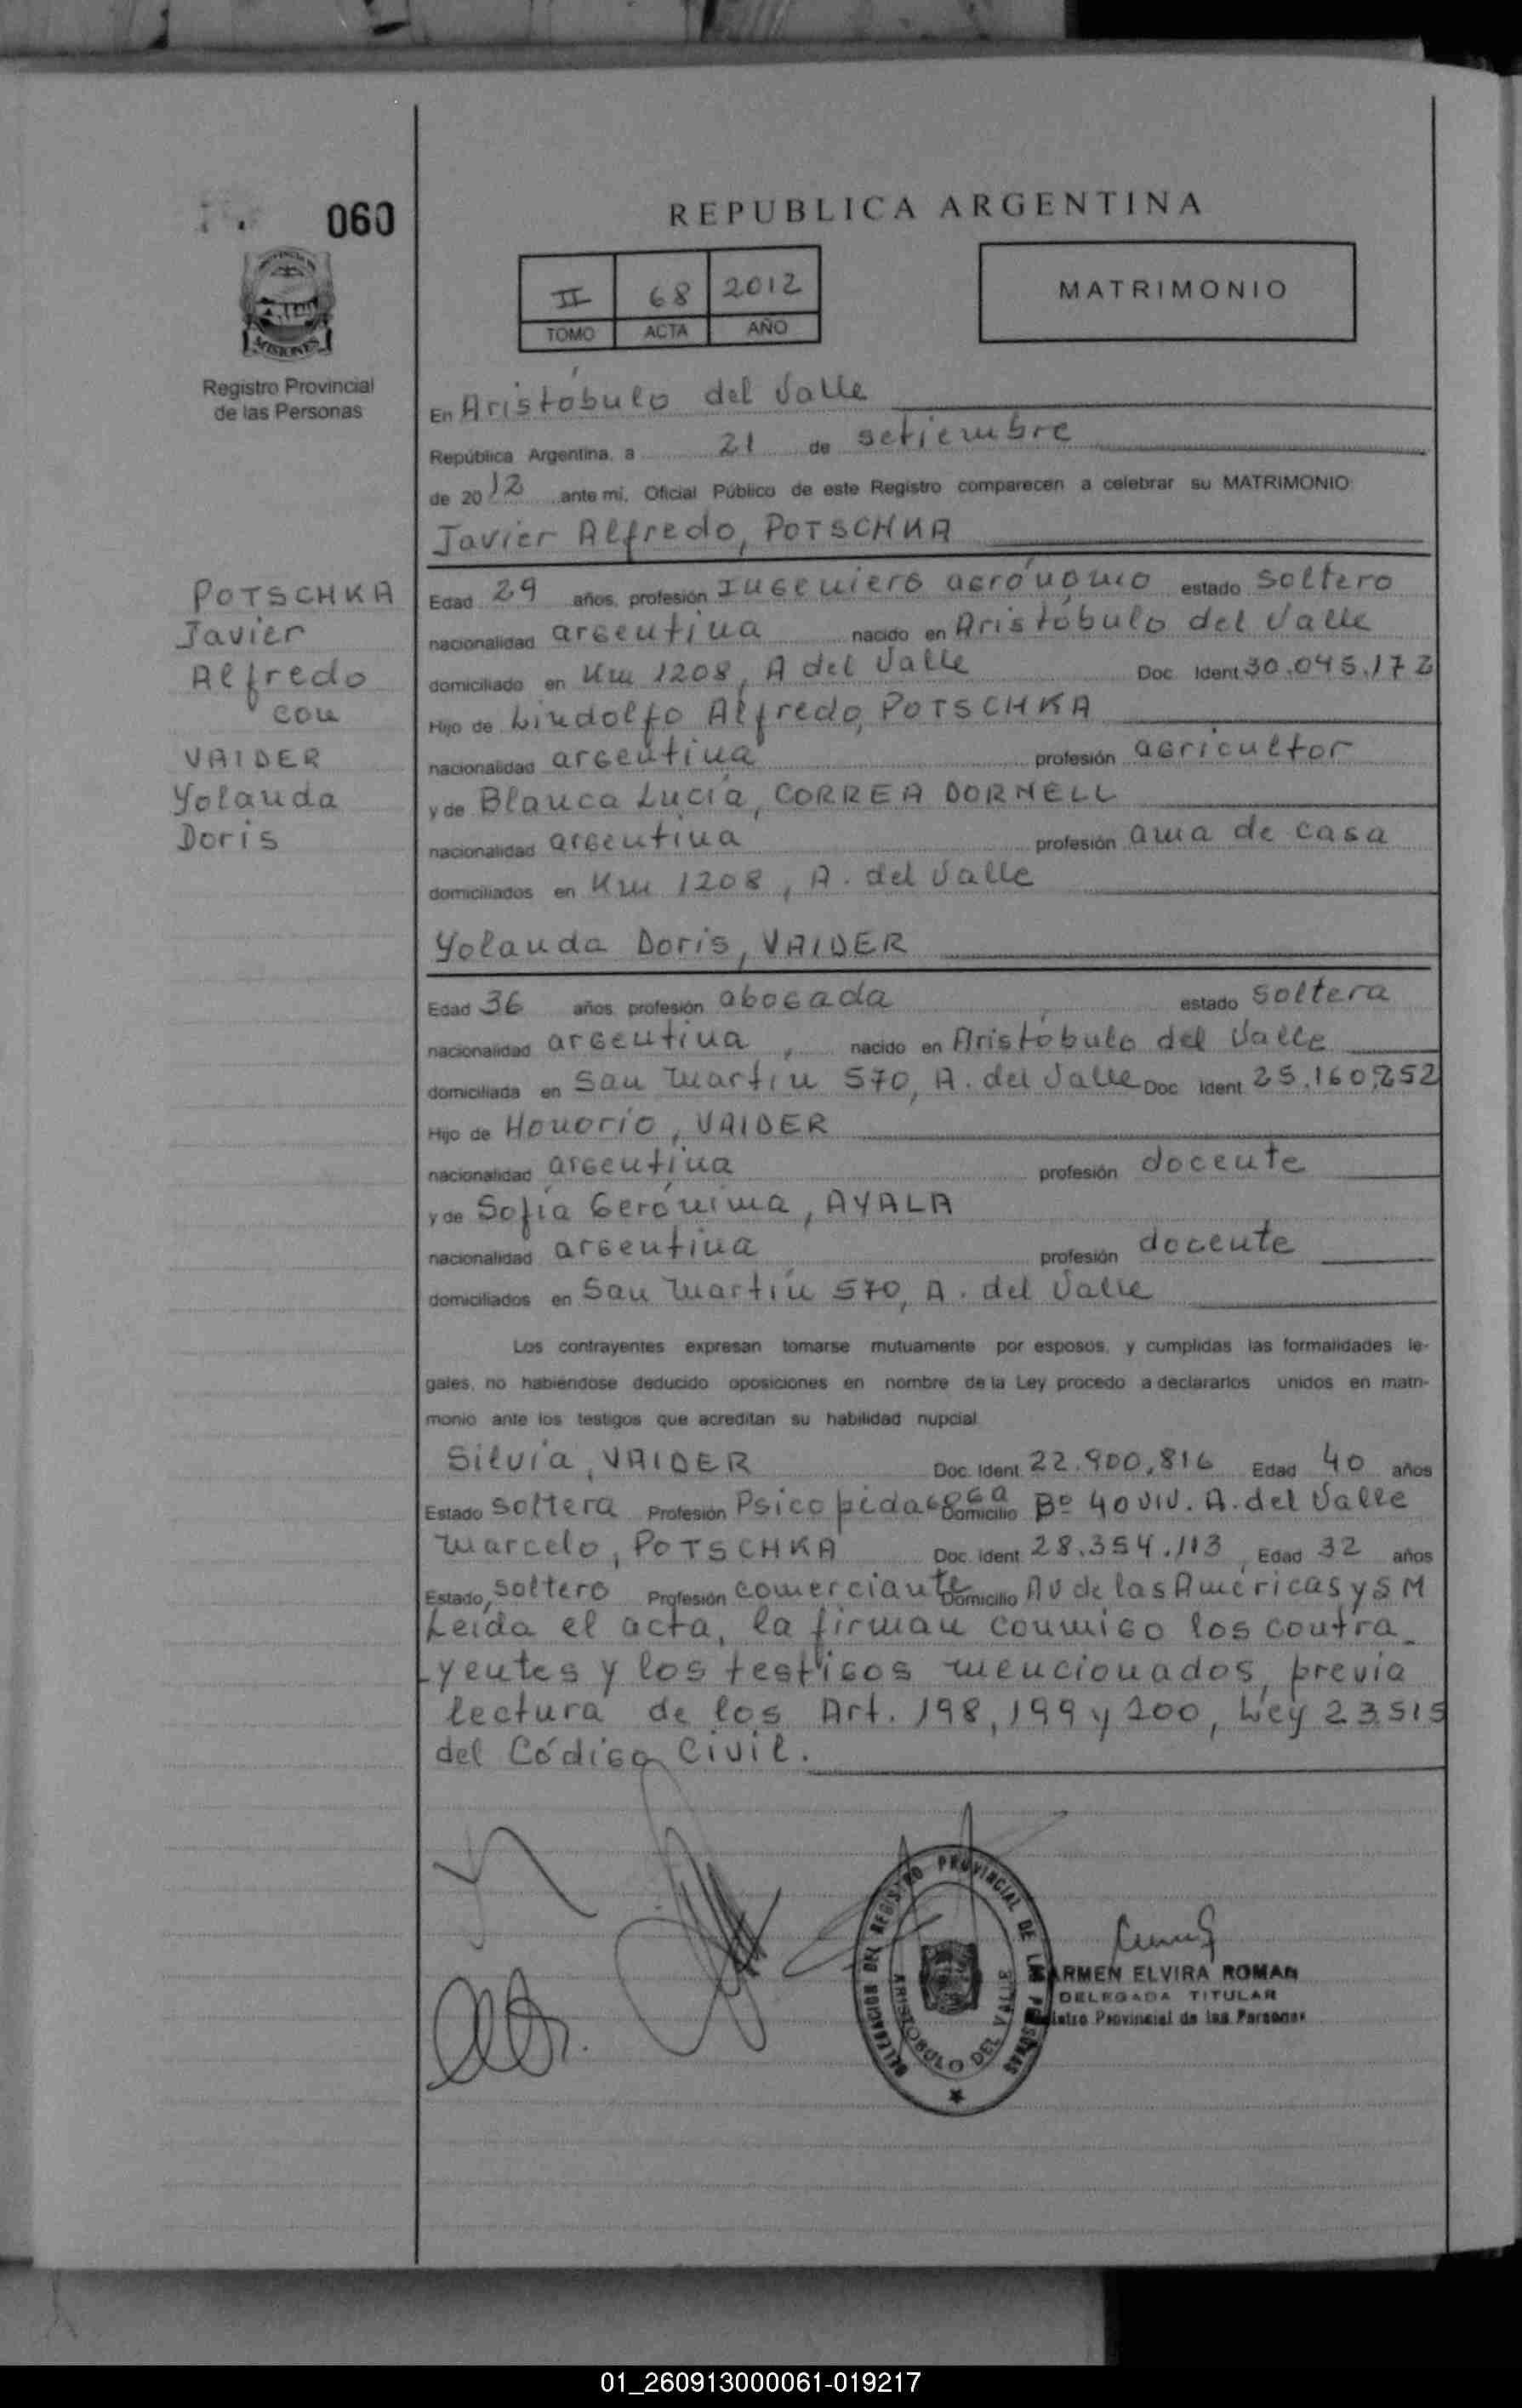 060
REPUBLICA ARGENTINA
II 68 2012
TOMO ACTA AÑO
MATRIMONIO
MISIONES
Registro Provincial
de las Personas
En Aristóbulo del Valle
República Argentina, a 21 de setiembre
de 2012 ante mi, Oficial Público de este Registro comparecen a celebrar su MATRIMONIO
Javier Alfredo, POTSCHKA
POTSCHKA
Javier
Alfredo
con
VAIDER
Yolanda
Doris
Edad 29 años, profesión Ingeniero agrónomo estado soltero
nacionalidad argentina nacido en Aristóbulo del Valle
domiciliado en Km 1208, A del Valle Doc. Ident 30.045.172
Hijo de Lindolfo Alfredo, POTSCHKA
nacionalidad argentina profesión agricultor
y de Blanca Lucía, CORREA DORNELL
nacionalidad argentina profesión ama de casa
domiciliados en Km 1208, A. del Valle
Yolanda Doris, VAIDER
Edad 36 años profesión abogada estado soltera
nacionalidad argentina, nacido en Aristóbulo del Valle
domiciliada en San Martín 570, A. del Valle Doc Ident 25.160.252
Hijo de Honorio, VAIDER
nacionalidad argentina profesión docente
y de Sofía Gerónima, AYALA
nacionalidad argentina profesión docente
domiciliados en San Martín 570, A. del Valle
Los contrayentes expresan tomarse mutuamente por esposos, y cumplidas las formalidades le-
gales, no habiendose deducido oposiciones en nombre de la Ley procedo a declararlos unidos en matri-
monio ante los testigos que acreditan su habilidad nupcial
Silvia, VAIDER Doc. Ident. 22.900.816 Edad 40 años
Estado soltera Profesión Psicopedagoga Domicilio Bº 40 viv. A. del Valle
Marcelo, POTSCHKA Doc. Ident 28.354.113 Edad 32 años
Estado, soltero Profesión comerciante Domicilio AV de las Américas y S M
Leída el acta, la firman conmigo los contra_
_yentes y los testigos mencionados, previa
lectura de los Art. 198, 199 y 200, Ley 23.515
del Código Civil.
DELEGACION DEL REGISTRO PROVINCIAL DE LAS PERSONAS
ARISTOBULO DEL VALLE
CARMEN ELVIRA ROMAN
DELEGADA TITULAR
Registro Provincial de las Personas
01_260913000061-019217